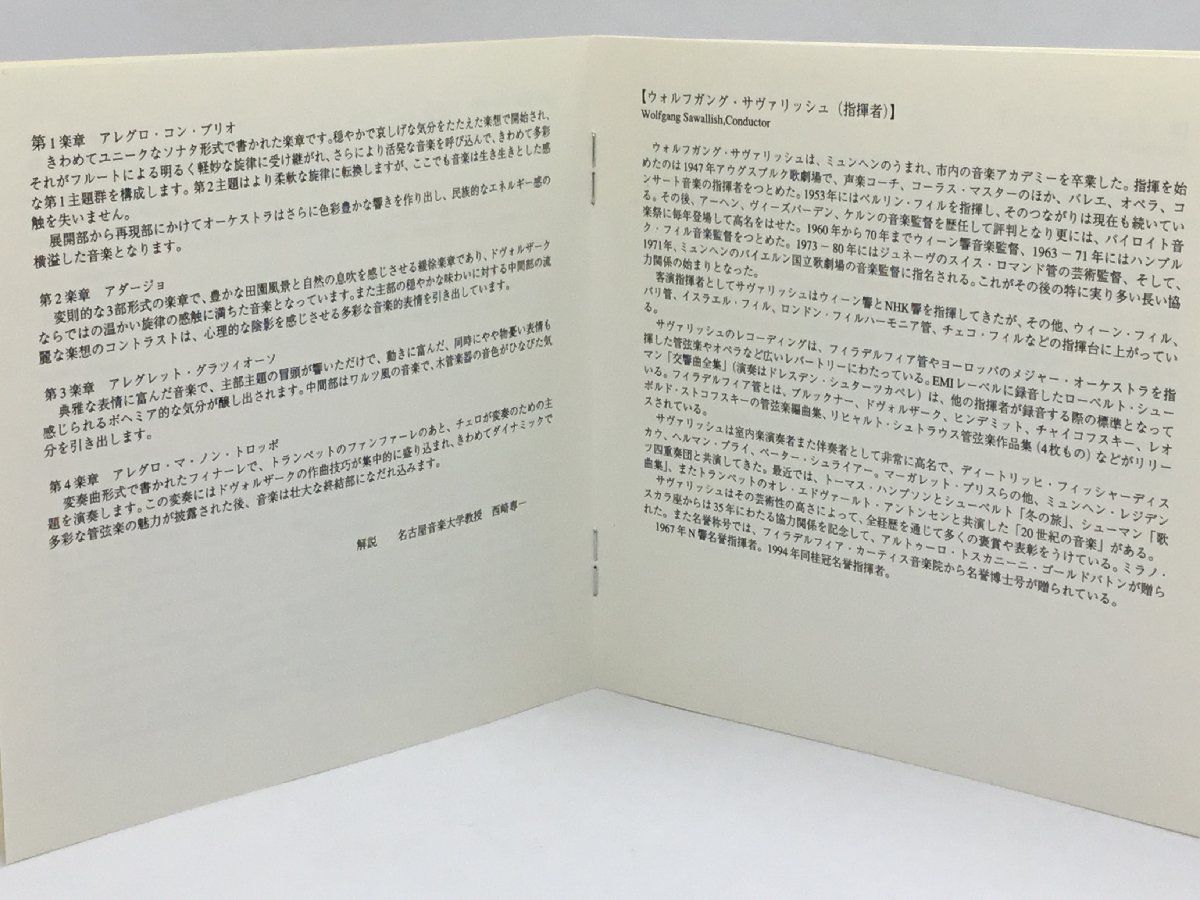 第1楽章　アレグロ・コン・ブリオ
きわめてユニークなソナタ形式で書かれた楽章です。穏やかで哀しげな気分をたたえた楽想で開始され、
それがフルートによる明るく軽妙な旋律に受け継がれ、さらにより活発な音楽を呼び込んで、きわめて多彩
な第1主題群を構成します。第2主題はより柔軟な旋律に転換しますが、ここでも音楽は生き生きとした感
触を失いません。
展開部から再現部にかけてオーケストラはさらに色彩豊かな響きを作り出し、民族的なエネルギー感の
横溢した音楽となります。
第2楽章　アダージョ
変則的な3部形式の楽章で、豊かな田園風景と自然の息吹を感じさせる緩徐楽章であり、ドヴォルザーク
ならではの温かい旋律の感触に満ちた音楽となっています。また主部の穏やかな味わいに対する中間部の流
麗な楽想のコントラストは、心理的な陰影を感じさせる多彩な音楽的表情を引き出しています。
第3楽章　アレグレット・グラツィオーソ
典雅な表情に富んだ音楽で、主部主題の冒頭が響いただけで、動きに富んだ、同時にやや物憂い表情も
感じられるボヘミア的な気分が醸し出されます。中間部はワルツ風の音楽で、木管楽器の音色がひなびた気
分を引き出します。
第4楽章　アレグロ・マ・ノン・トロッポ
変奏曲形式で書かれたフィナーレで、トランペットのファンファーレのあと、チェロが変奏のための主
題を演奏します。この変奏にはドヴォルザークの作曲技巧が集中的に盛り込まれ、きわめてダイナミックで
多彩な管弦楽の魅力が披露された後、音楽は壮大な終結部になだれ込みます。
解説　名古屋音楽大学教授　西崎専一
【ウォルフガング・サヴァリッシュ（指揮者）】
Wolfgang Sawallish,Conductor
ウォルフガング・サヴァリッシュは、ミュンヘンのうまれ、市内の音楽アカデミーを卒業した。指揮を始
めたのは1947年アウグスブルク歌劇場で、声楽コーチ、コーラス・マスターのほか、バレエ、オペラ、コ
ンサート音楽の指揮者をつとめた。1953年にはベルリン・フィルを指揮し、そのつながりは現在も続いてい
る。その後、アーヘン、ヴィーズバーデン、ケルンの音楽監督を歴任して評判となり更には、バイロイト音
楽祭に毎年登場して高名をはせた。1960年から70年までウィーン響音楽監督、1963－71年にはハンブル
ク・フィル音楽監督をつとめた。1973－80年にはジュネーヴのスイス・ロマンド管の芸術監督、そして、
1971年、ミュンヘンのバイエルン国立歌劇場の音楽監督に指名される。これがその後の特に実り多い長い協
力関係の始まりとなった。
客演指揮者としてサヴァリッシュはウィーン響とNHK響を指揮してきたが、その他、ウィーン・フィル、
パリ管、イスラエル・フィル、ロンドン・フィルハーモニア管、チェコ・フィルなどの指揮台に上がってい
る。
サヴァリッシュのレコーディングは、フィラデルフィア管やヨーロッパのメジャー・オーケストラを指
揮した管弦楽やオペラなど広いレパートリーにわたっている。EMIレーベルに録音したローベルト・シュー
マン「交響曲全集」（演奏はドレスデン・シュターツカペレ）は、他の指揮者が録音する際の標準となって
いる。フィラデルフィア管とは、ブルックナー、ドヴォルザーク、ヒンデミット、チャイコフスキー、レオ
ポルド・ストコフスキーの管弦楽編曲集、リヒャルト・シュトラウス管弦楽作品集（4枚もの）などがリリー
スされている。
サヴァリッシュは室内楽演奏者また伴奏者として非常に高名で、ディートリッヒ・フィッシャーディス
カウ、ヘルマン・プライ、ペーター・シュライアー。マーガレット・プリスらの他、ミュンヘン・レジデン
ツ四重奏団と共演してきた。最近では、トーマス・ハンプソンとシューベルト「冬の旅」、シューマン「歌
曲集」、またトランペットのオレ・エドヴァールト・アントンセンと共演した「20世紀の音楽」がある。
サヴァリッシュはその芸術性の高さによって、全経歴を通じて多くの褒賞や表彰をうけている。ミラノ・
スカラ座からは35年にわたる協力関係を記念して、アルトゥーロ・トスカニーニ・ゴールドバトンが贈ら
れた。また名誉称号では、フィラデルフィア・カーティス音楽院から名誉博士号が贈られている。
1967年N響名誉指揮者。1994年同桂冠名誉指揮者。